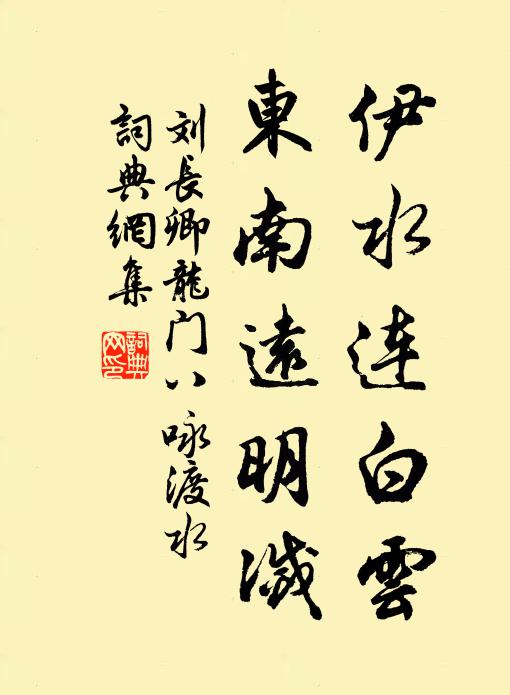 伊水连白雲
東南遠明滅
刘長卿龍门八咏渡水
詞典網集
詞典
网印